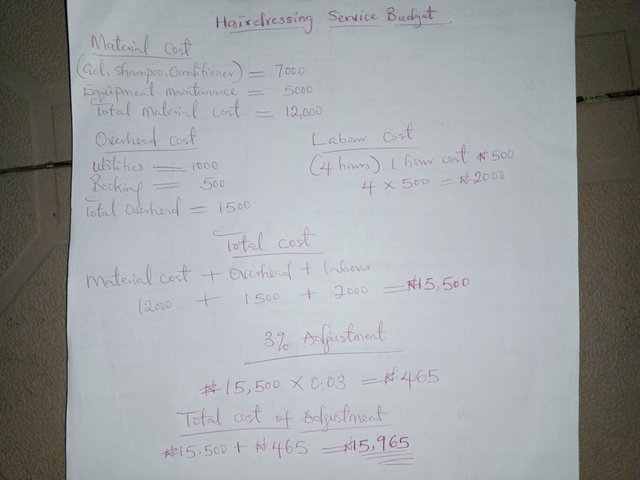 Hairdressing Service Budget
Material Cost
(Gel, Shampoo, Conditioner) = 7000
Equipment maintanance = 5000
Total Material cost = 12,000
Overhead Cost
Utilities = 1000
Booking = 500
Total Overhead = 1500
Labour Cost
(4 hours) 1 hour cost ₦500
4 × 500 = ₦2000
Total Cost
Material cost + Overhead + labour
12000 + 1500 + 2000 = ₦15,500
3% Adjustment
₦15,500 × 0.03 = ₦465
Total Cost of Adjustment
₦15,500 + ₦465 = ₦15,965